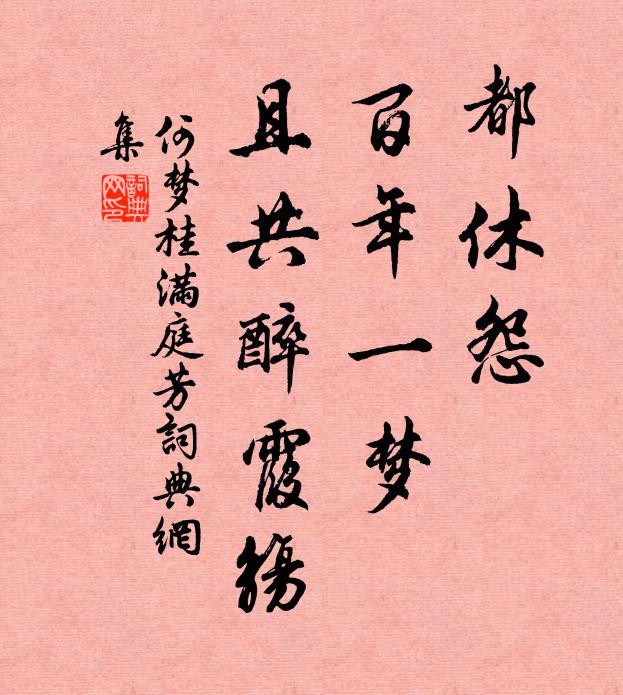 都休怨
百年一梦
且共醉霞觞
何梦桂满庭芳詞典網
集
詞典网印